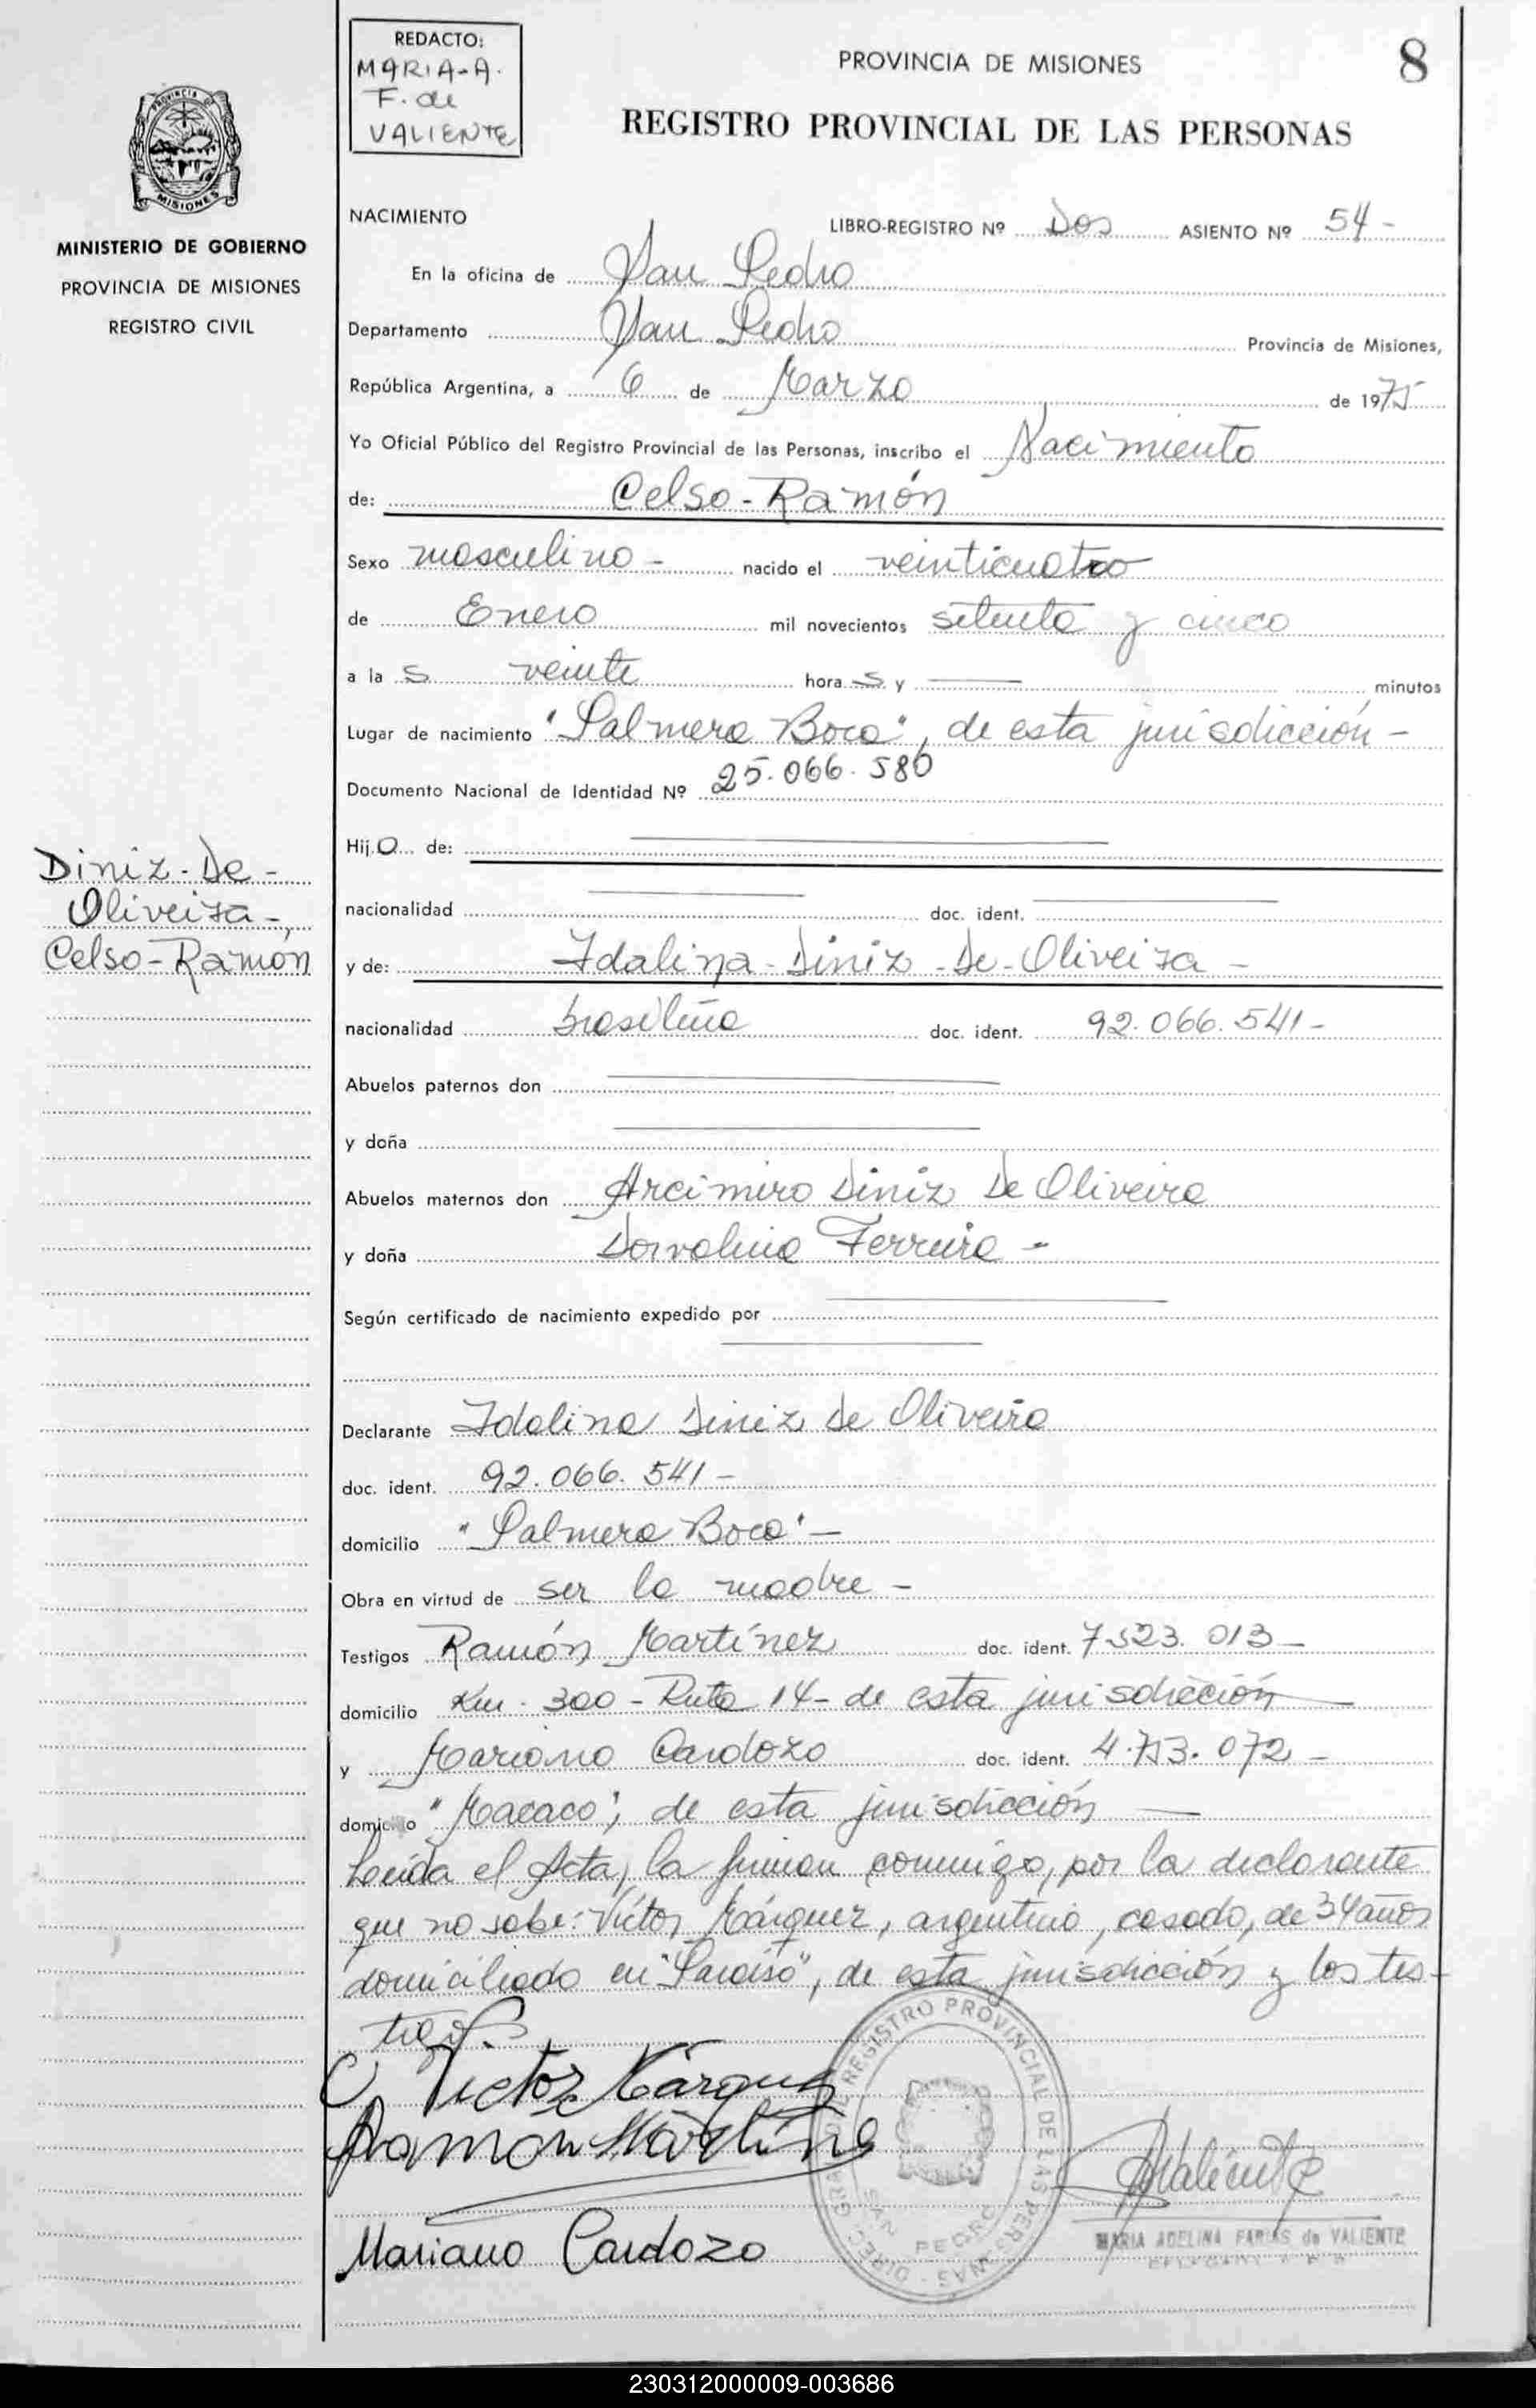 REDACTO:
MARIA-A.
F. de
VALIENTE
PROVINCIA DE MISIONES
8
REGISTRO PROVINCIAL DE LAS PERSONAS
PROVINCIA DE
MISIONES
MINISTERIO DE GOBIERNO
PROVINCIA DE MISIONES
REGISTRO CIVIL
NACIMIENTO
LIBRO-REGISTRO Nº Dos ASIENTO Nº 54-
En la oficina de San Pedro
Departamento San Pedro Provincia de Misiones,
República Argentina, a 6 de Marzo de 1975
Yo Oficial Público del Registro Provincial de las Personas, inscribo el Nacimiento
de: Celso-Ramón
Sexo masculino- nacido el veinticuatro
de Enero mil novecientos setenta y cinco
a la s veinte hora s y — minutos
Lugar de nacimiento "Palmera Boca", de esta jurisdicción-
Documento Nacional de Identidad Nº 25.066.580
Hijo de:
Diniz-De-
Oliveira-,
Celso-Ramón
nacionalidad doc. ident.
y de: Idalina-Diniz-De-Oliveira-
nacionalidad brasileña doc. ident. 92.066.541-
Abuelos paternos don
y doña
Abuelos maternos don Arcimiro Diniz De Oliveira
y doña Dorvalina Ferreira-
Según certificado de nacimiento expedido por
Declarante Idalina Diniz de Oliveira
doc. ident. 92.066.541-
domicilio "Palmera Boca"-
Obra en virtud de ser la madre-
Testigos Ramón Martínez doc. ident. 7.523.013-
domicilio Km. 300-Ruta 14-de esta jurisdicción
y Mariano Cardozo doc. ident. 4.753.072-
domicilio "Macaco", de esta jurisdicción
Leída el Acta, la firman conmigo, por la declarante
que no sabe: Víctor Márquez, argentino, casado, de 34 años
domiciliado en "Paraíso", de esta jurisdicción y los tes-
tigos.
Victor Márquez
Ramón Martínez
Mariano Cardozo
REGISTRO PROVINCIAL DE LAS PERSONAS
SAN PEDRO
Valiente
MARIA ADELINA FARIAS de VALIENTE
230312000009-003686